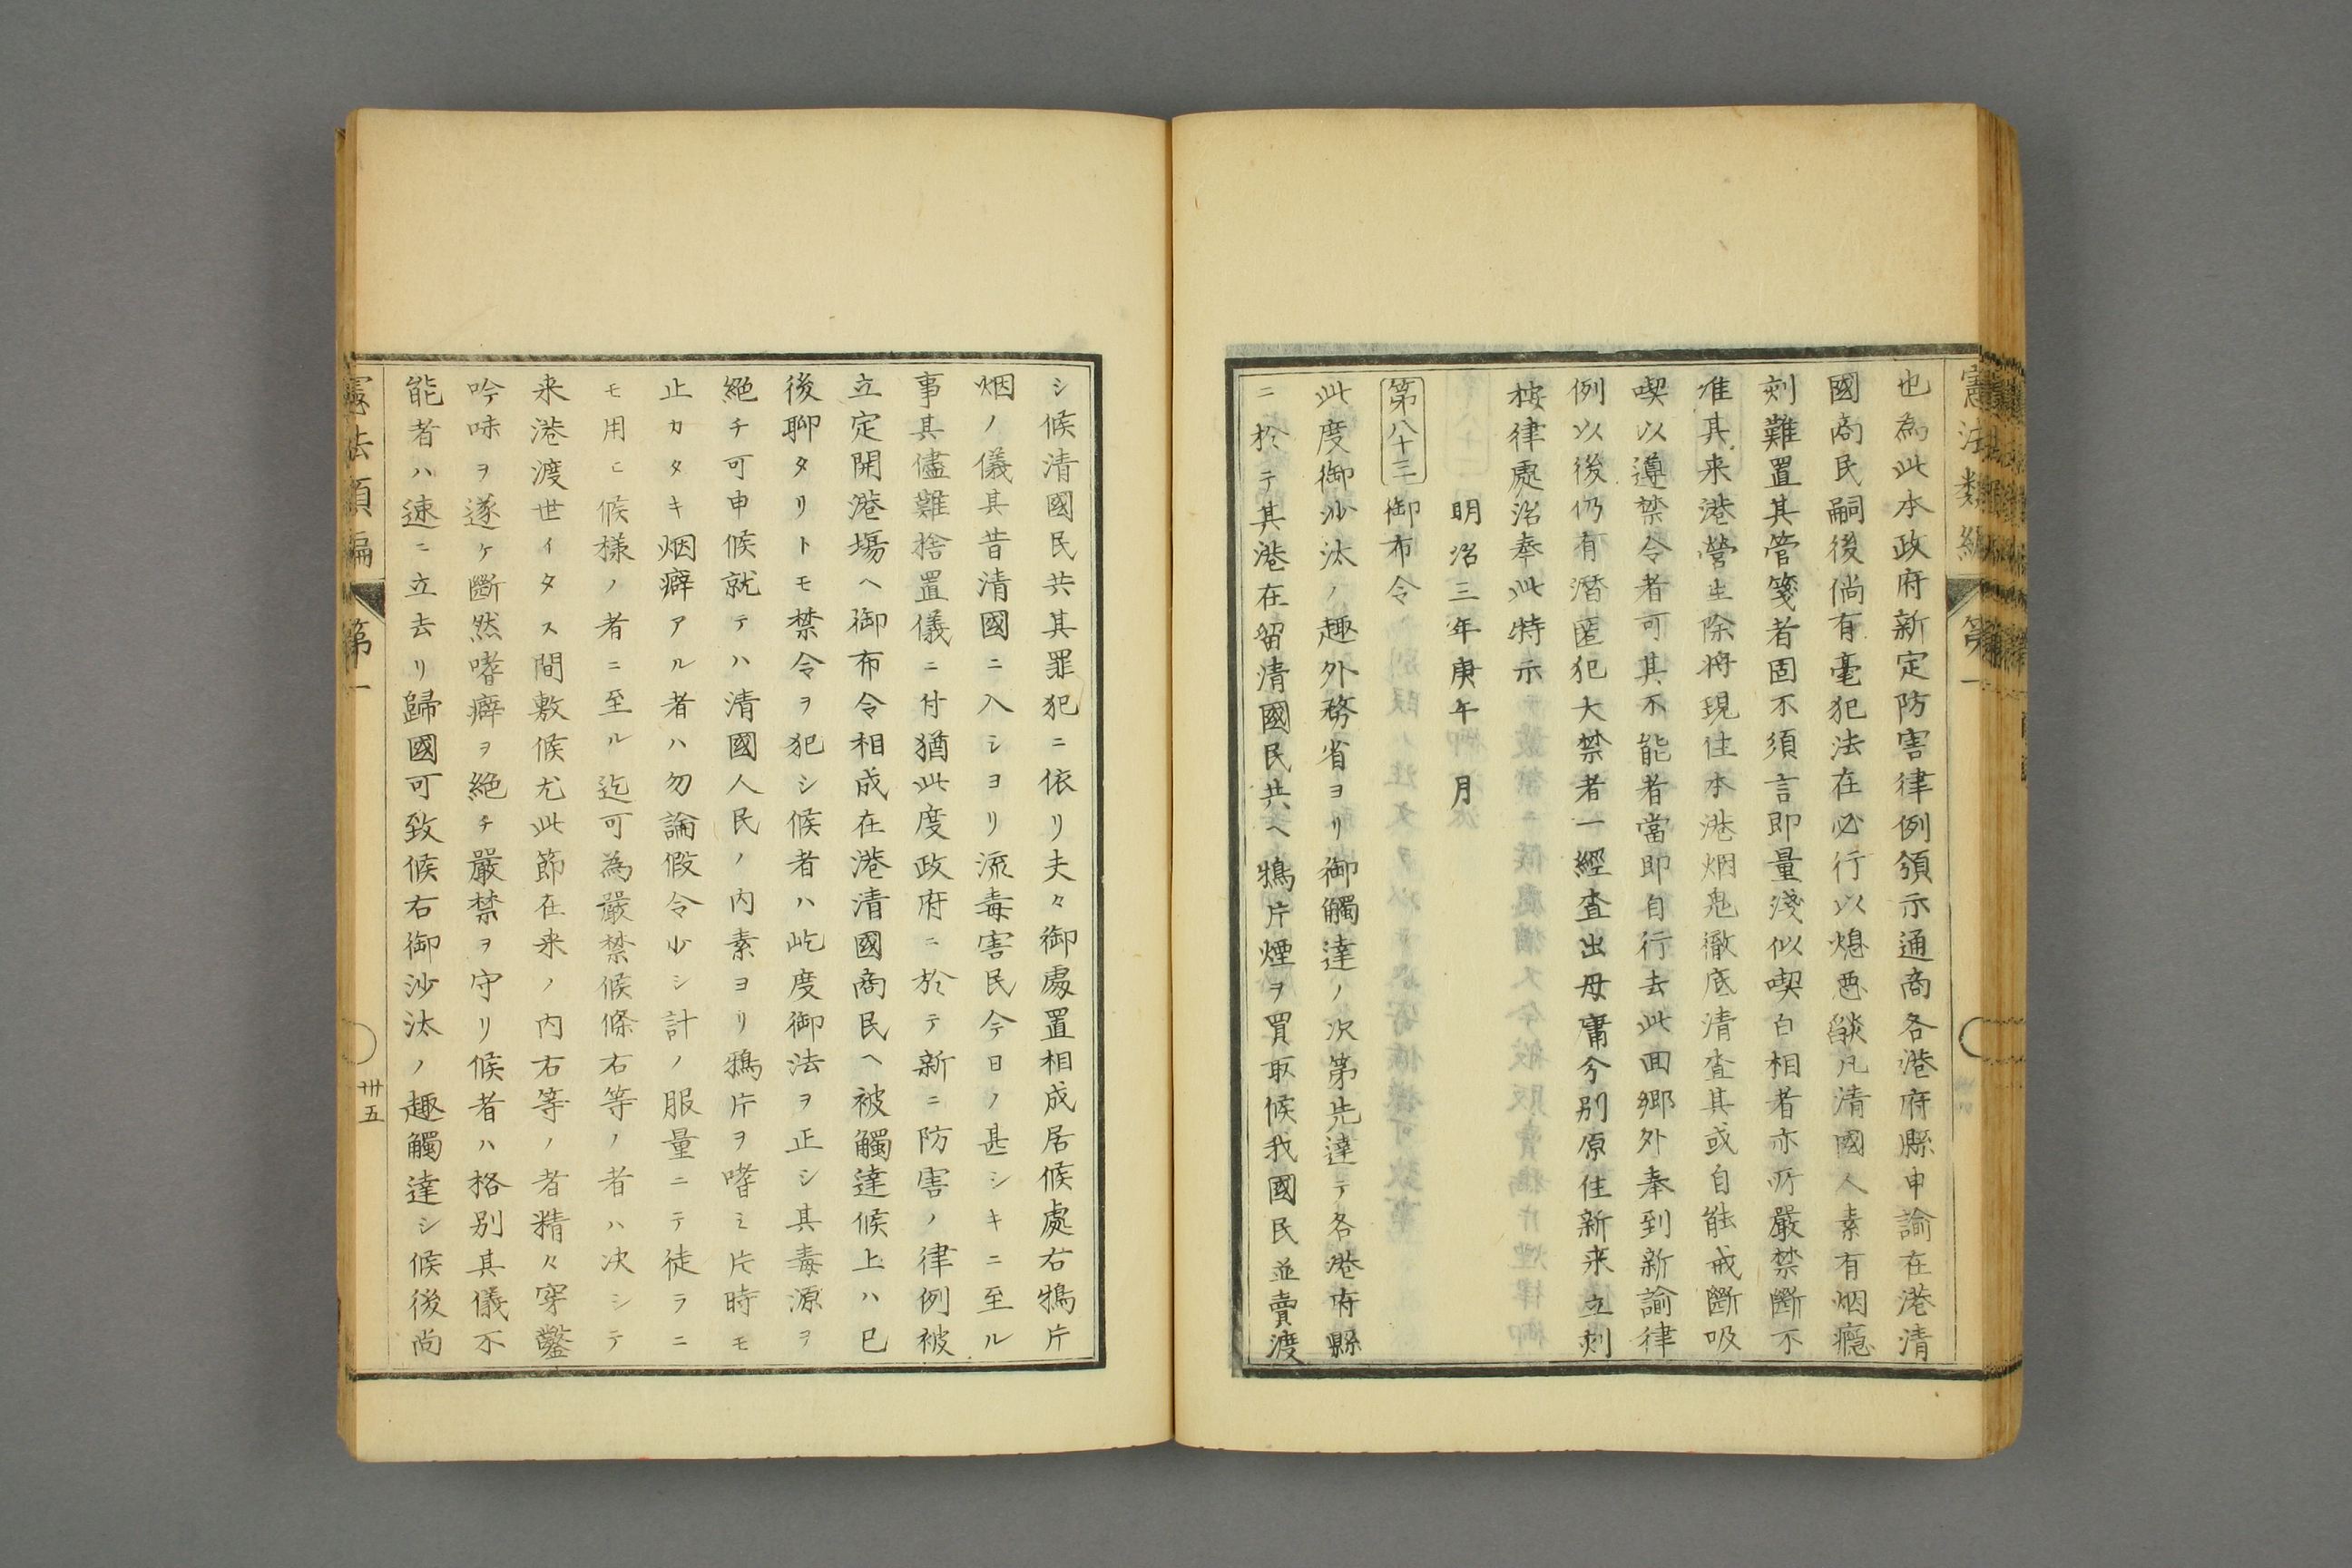 憲法類編 第一
也為此本政府新定防害律例頒示通商各港府縣申諭在港清
國商民嗣後倘有毫犯法在必行以熄惡燄凡清國人素有烟癮
刻難置其管箋者固不須言即量淺似喫白相者亦所嚴禁斷不
准其来港營生除将現住本港烟鬼徹底清査其或自能戒斷吸
喫以遵禁令者可其不能者當即自行去此回鄉外奉到新諭律
例以後仍有潜匿犯大禁者一經査出毋庸分别原住新来立刻
按律處治奉此特示
明治三年庚午月
第八十三 御布令
此度御沙汰ノ趣外務省ヨリ御觸達ノ次第先達テ各港府縣
ニ於テ其港在留清國民共ヘ鴉片煙ヲ買取候我國民並賣渡
シ候清國民共其罪犯ニ依リ夫々御處置相成居候處右鴉片
烟ノ儀其昔清國ニ入シヨリ流毒害民今日ノ甚シキニ至ル
事其儘難捨置儀ニ付猶此度政府ニ於テ新ニ防害ノ律例被
立定開港場ヘ御布令相成在港清國商民ヘ被觸達候上ハ已
後聊タリトモ禁令ヲ犯シ候者ハ屹度御法ヲ正シ其毒源ヲ
絶チ可申候就テハ清國人民ノ内素ヨリ鴉片ヲ嗜ミ片時モ
止カタキ烟癖アル者ハ勿論假令少シ計ノ服量ニテ徒ラニ
モ用ヒ候樣ノ者ニ至ル迄可為嚴禁候條右等ノ者ハ决シテ
来港渡世イタス間敷候尤此節在来ノ内右等ノ者精々穿鑿
吟味ヲ遂ケ斷然嗜癖ヲ絶チ嚴禁ヲ守リ候者ハ格别其儀不
能者ハ速ニ立去リ歸國可致候右御沙汰ノ趣觸達シ候後尚
憲法類編 第一 卅五